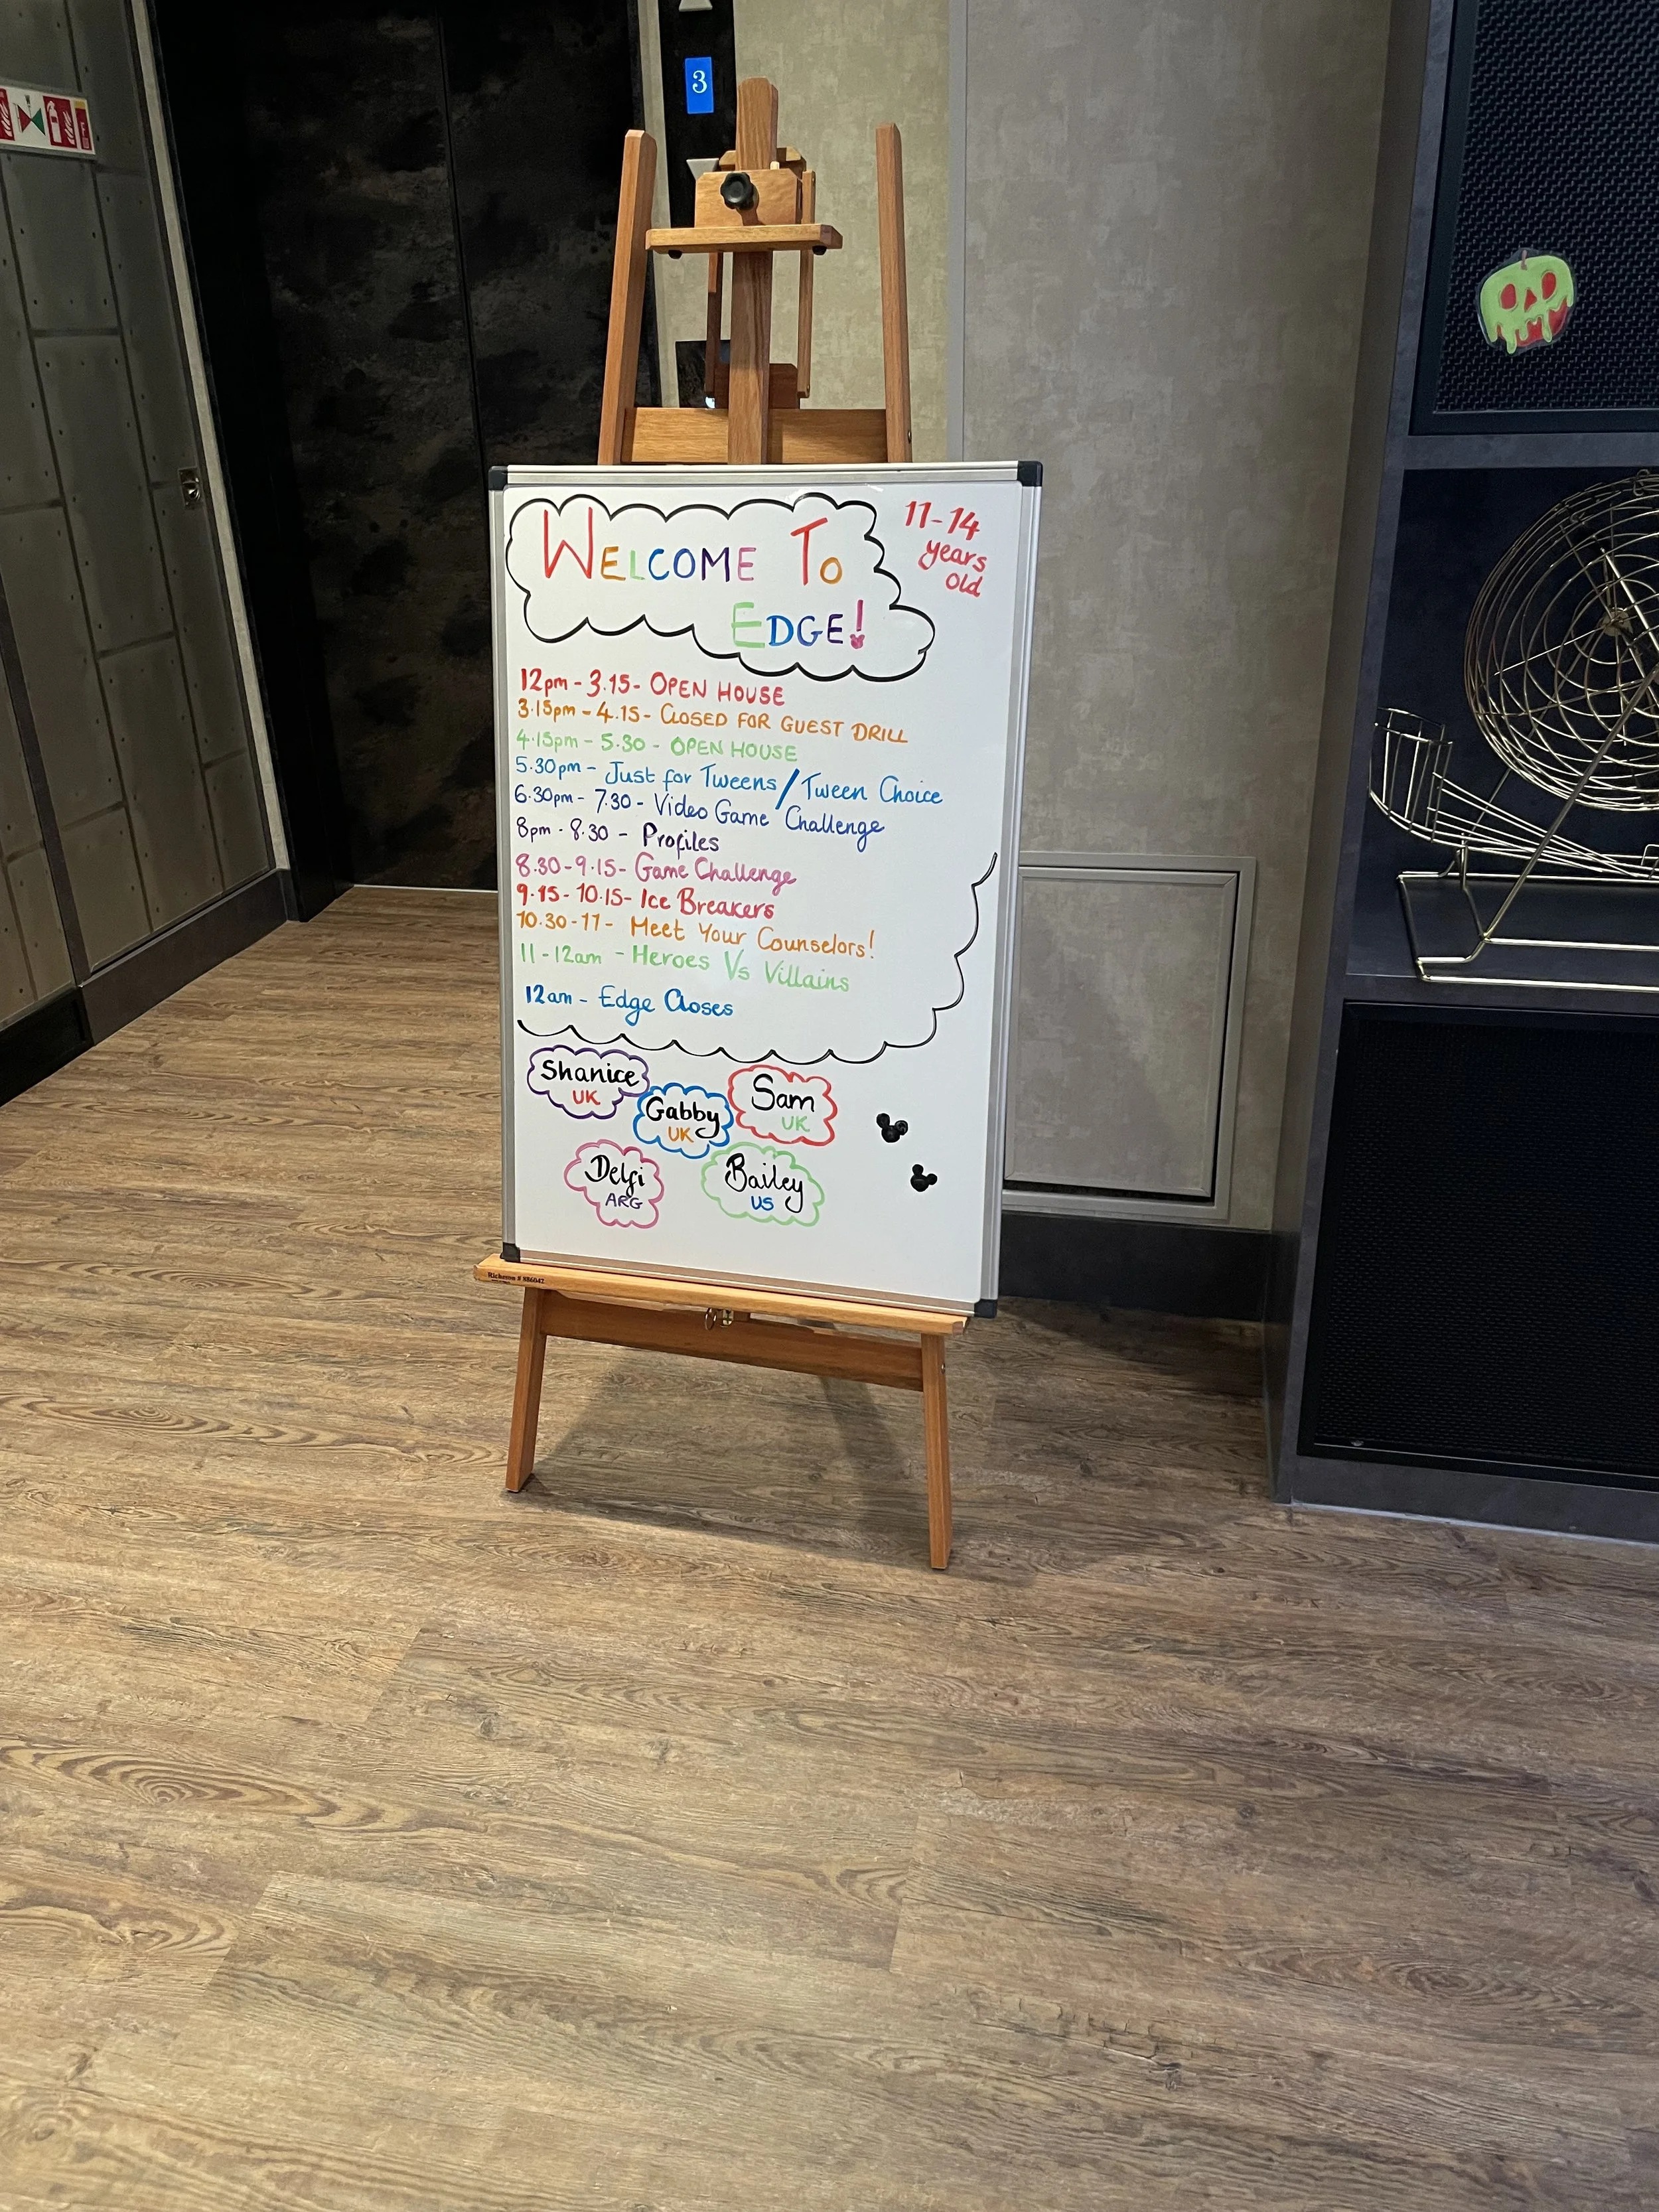 3
WELCOME TO
EDGE!
11-14
years
old
12pm - 3.15 - OPEN HOUSE
3.15pm - 4.15 - CLOSED FOR GUEST DRILL
4.15pm - 5.30 - OPEN HOUSE
5.30pm - Just for Tweens / Tween Choice
6.30pm - 7.30 - Video Game Challenge
8pm - 8.30 - Profiles
8.30 - 9.15 - Game Challenge
9.15 - 10.15 - Ice Breakers
10.30 - 11 - Meet Your Counselors!
11 - 12am - Heroes Vs Villains
12am - Edge Closes
Shanice
UK
Gabby
UK
Sam
UK
Delfi
ARG
Bailey
US
Richeson # 886042